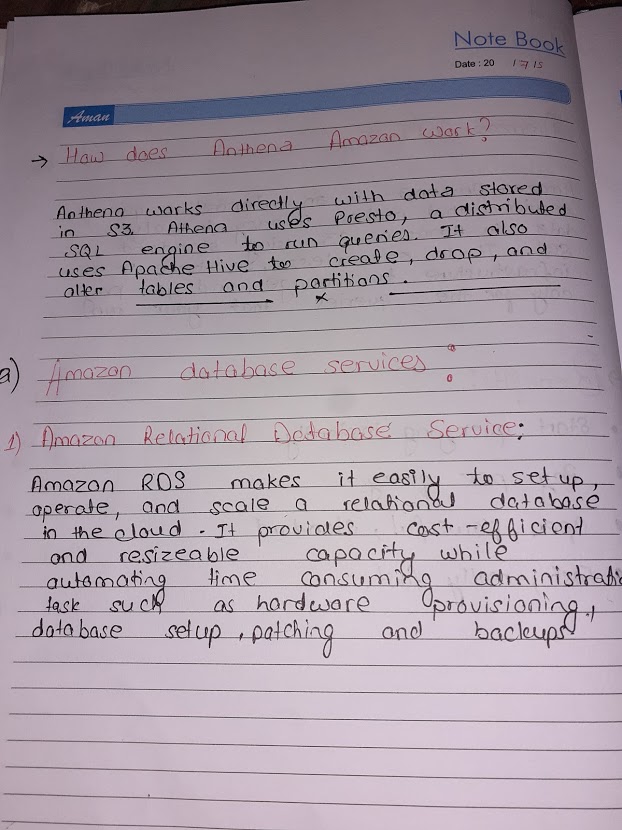 Note Book
Date : 20 1715
Aman
→ How does Anthena Amazon work?
Anthena works directly with data stored
in S3. Athena uses Presto, a distributed
SQL engine to run queries. It also
uses Apache Hive to create, drop, and
alter tables and partitions.
a) Amazon database services :
1) Amazon Relational Database Service:
Amazon RDS makes it easily to set up,
operate, and scale a relational database
in the cloud. It provides cost-efficient
and resizeable capacity while
automating time consuming administratio
task such as hardware provisioning,
database setup, patching and backups